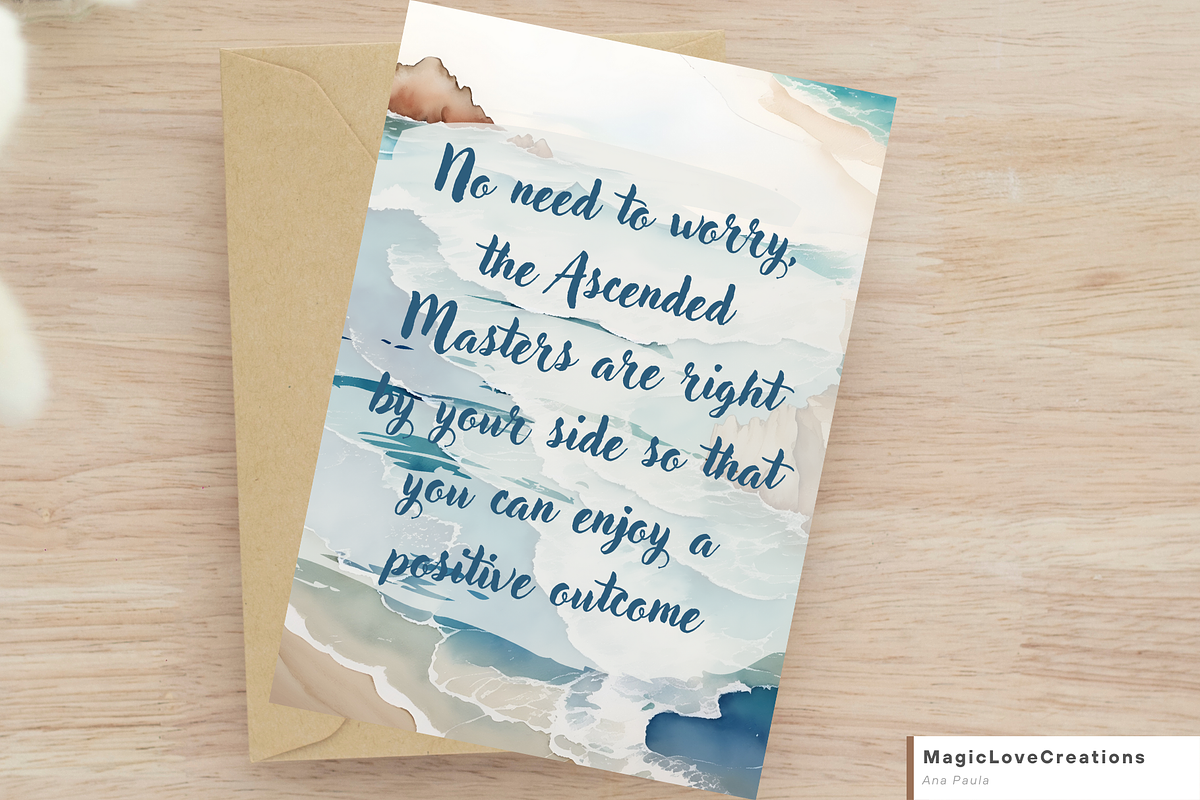 No need to worry,
the Ascended
Masters are right
by your side so that
you can enjoy a
positive outcome
MagicLoveCreations
Ana Paula